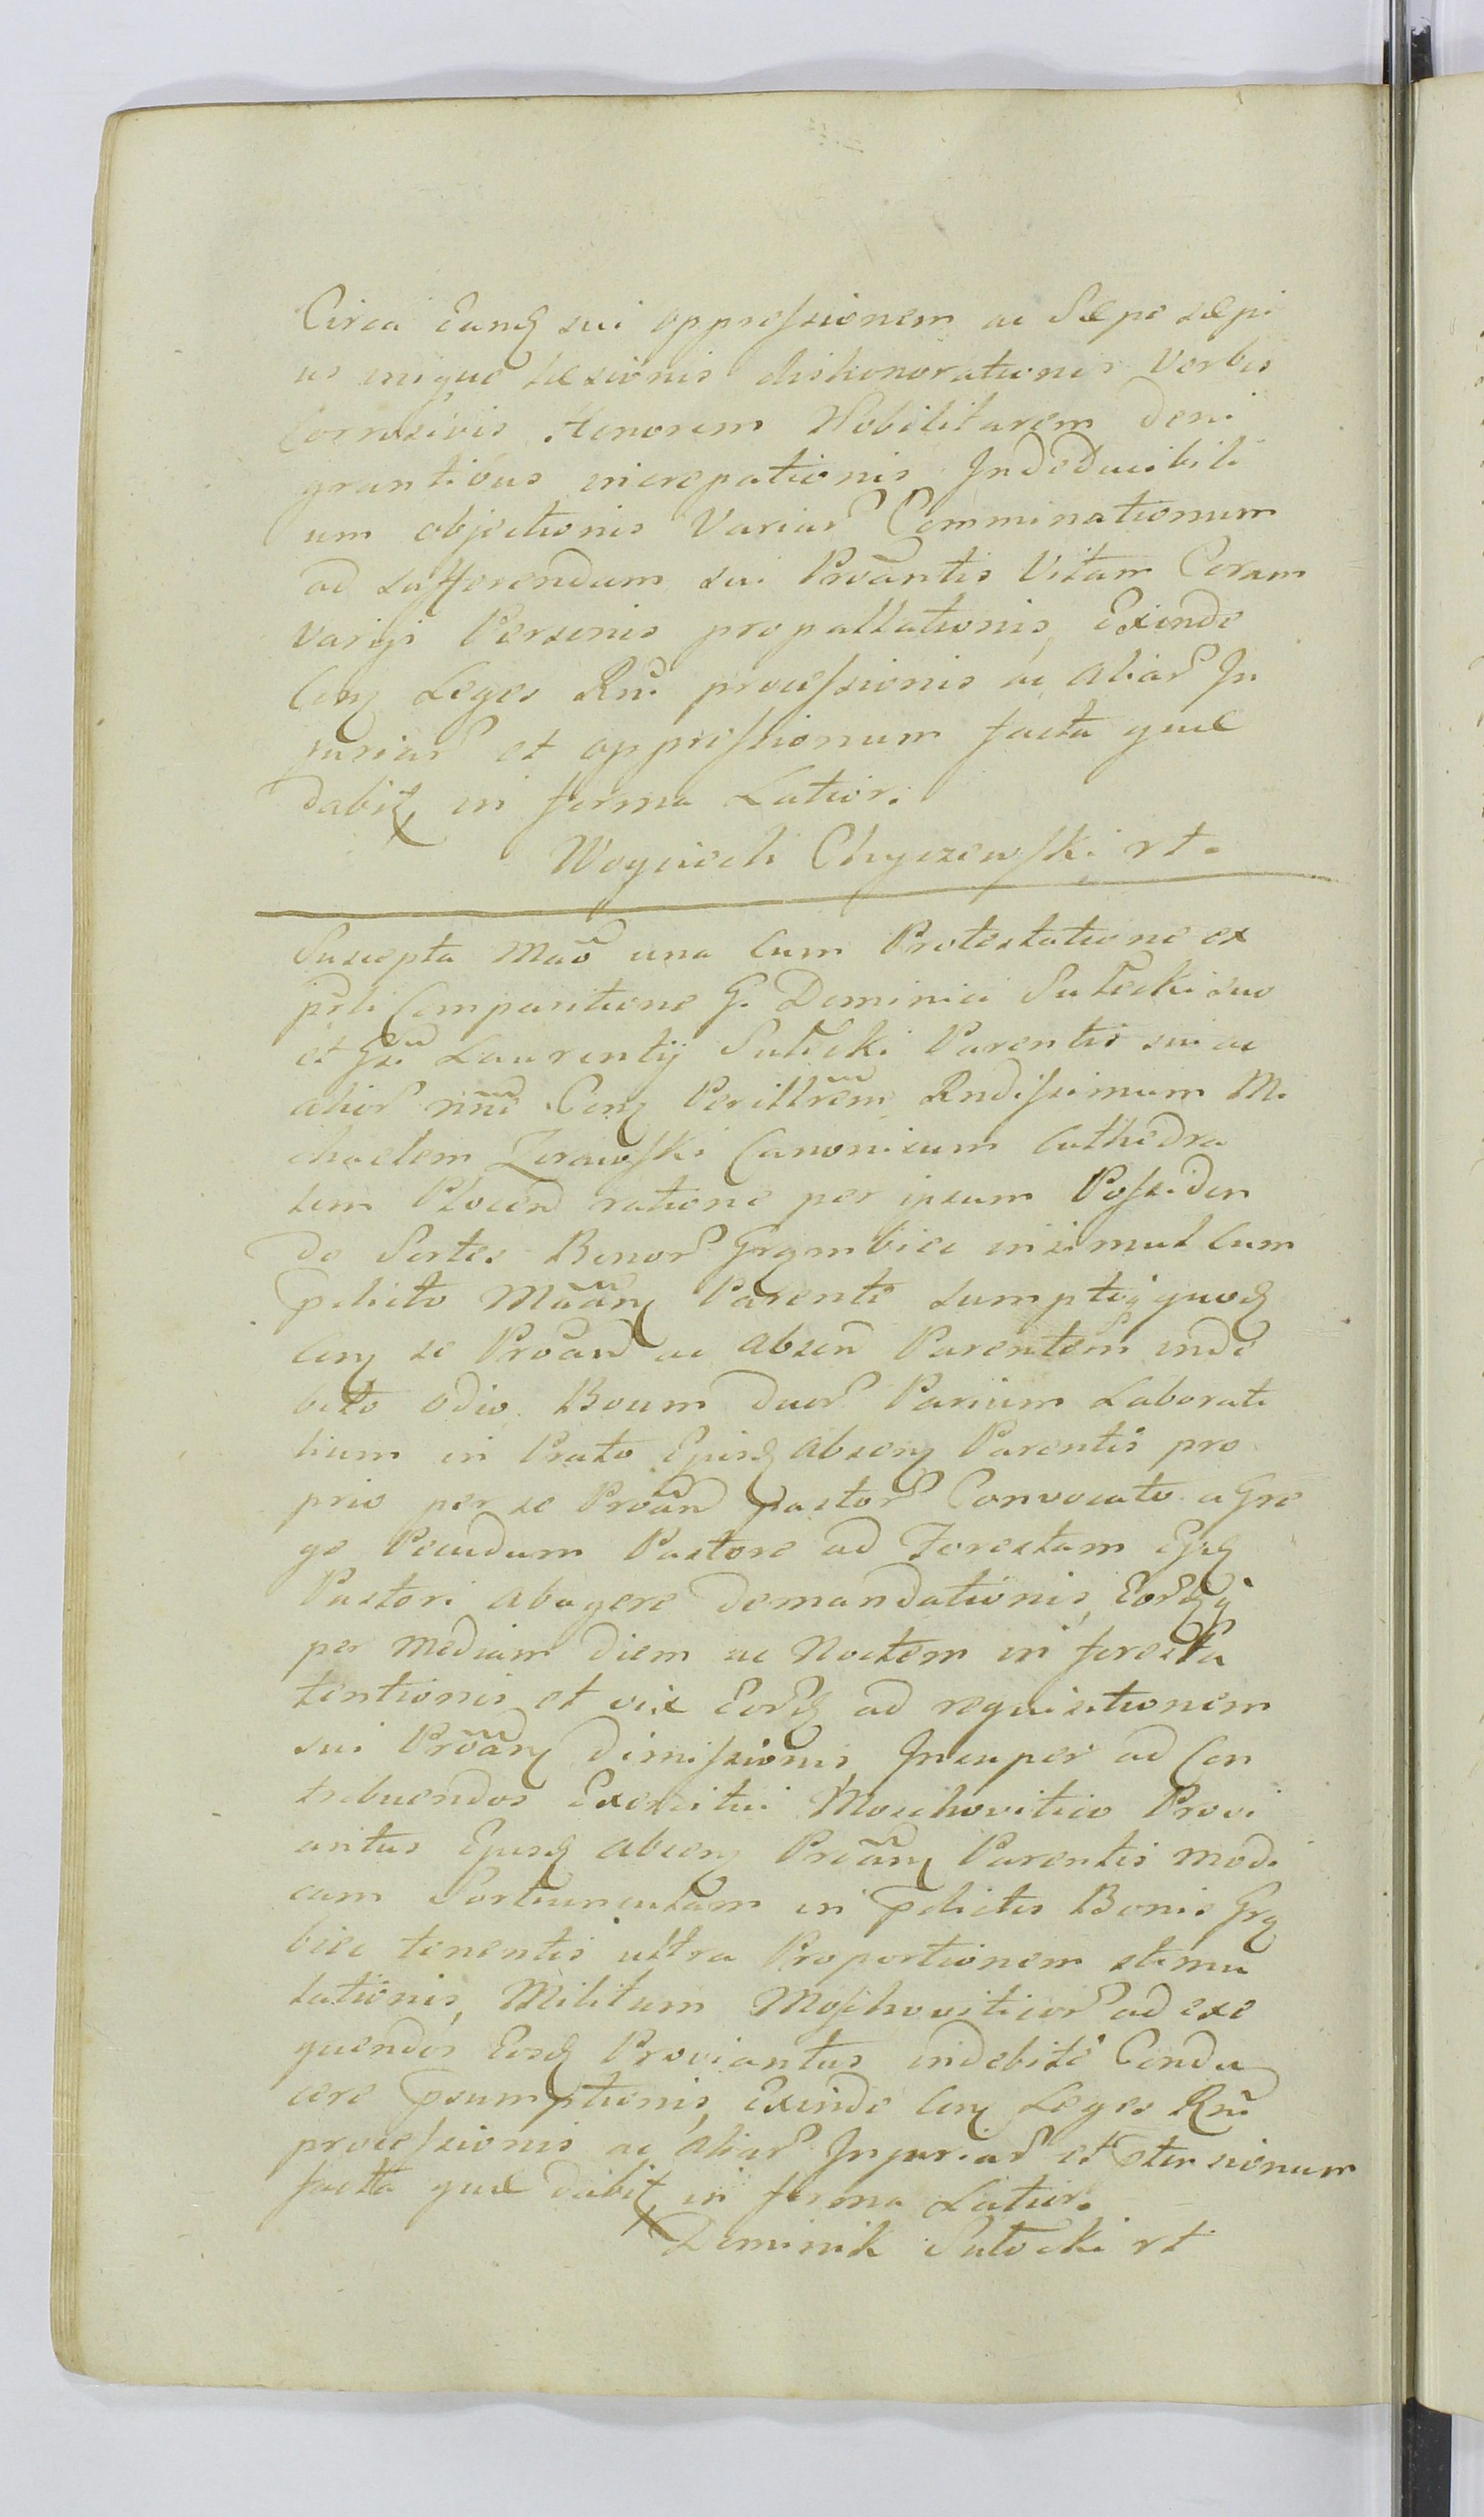 Circa Eand sui oppressionem ac Sæpe sæpi
us inique læsionis dishonorationis verbis
Corrosivis Honorem Nobilitarem deni
grantibus increpationis Indeducibili
um objectionis Variar Comminationum
ad sufferendum sui Proantis Vitam Coram
varijs Personis propallationis, Exinde
Con Leges Rni processionis ac aliar In
juriar et oppressionum facta quæ
dabit in forma Latior.
Woyciech Chyczewski rt.
Suscepta Mão una Cum Protestatione ex
prsli Comparitione G. Dominici Sutocki suo
et Gsi Laurentij Sutocki Parentis sui ac
alior nñe Con Perillrem Rndissimum Mi
chaelem Zorawski Canonicum Cathedra
lem Plocen ratione per ipsum Possiden
do Sortes Bonor Grzmbice insimul Cum
pdicto Mãan Parente sumptis quod
Con se Proan ac absen Parentem inde
bito odio Boum duor Parium Laborati
lium in Prato Ejusd absen Parentis pro
prio per se Proan pastor Convocato a Gre
ge Pecudum Pastore ad Forestam Ejusd
Pastori abagere demandationis, Eord
per mediam diem ac Noctem in foresta
tentionis et vix Eord ad requisitionem
sui Proan dimissionis, Insuper ad Con
tribuendos Exercitui Moschovitico Provi
antus Ejusd absen Proan Parentis modi
cam Portiunculam in pdictis Bonis Grz
bice tenentis ultra Proportionem stimu
lationis, Militum Moschoviticor ad exe
quendos Eosd Proviantus indebite Condu
cere psumptionis, Exinde Con Leges Rni
processionis ac aliar Injuriar et
facta quæ dabit in forma Latior.
Dominik Sutocki rt